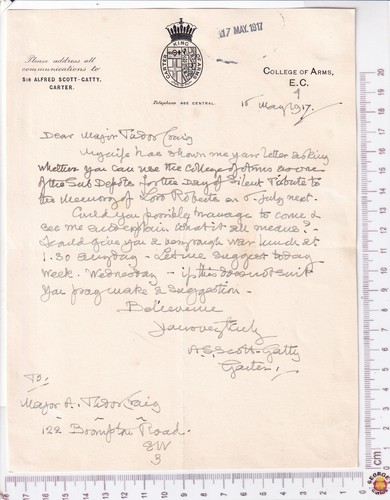 17 MAY. 1917
Please address all
communications to
SIR ALFRED SCOTT-GATTY,
GARTER.
GARTER KING OF ARMS
Telephone 483 CENTRAL.
COLLEGE OF ARMS,
E.C.
4
15 May 1917.
Dear Major Tudor Craig
My wife has shown me your letter asking
whether you can use the College of Arms as one
of the Sub Depots for the Day of Silent Tribute to
the Memory of Lord Roberts on 5 July next.
Could you possibly manage to come &
see me and explain what it all means?
I could give you a very rough war lunch at
1.30 any day - Let me suggest today
week. Wednesday - if this does not suit
you pray make a suggestion -
Believe me
Yours very truly
A S Scott-Gatty
Garter.
To:
Major A. Tudor Craig
122 Brompton Road.
SW
3